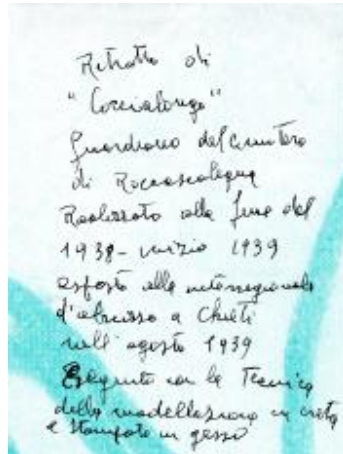 Ritratto di
"Coccialonga"
Guardiano del Cimitero
di Roccascalegna
Realizzato alla fine del
1938 - inizio 1939
esposto alla interregionale
d'abruzzo a Chieti
nell'agosto 1939
Eseguito con la Tecnica
della modellazione in creta
e stampato in gesso